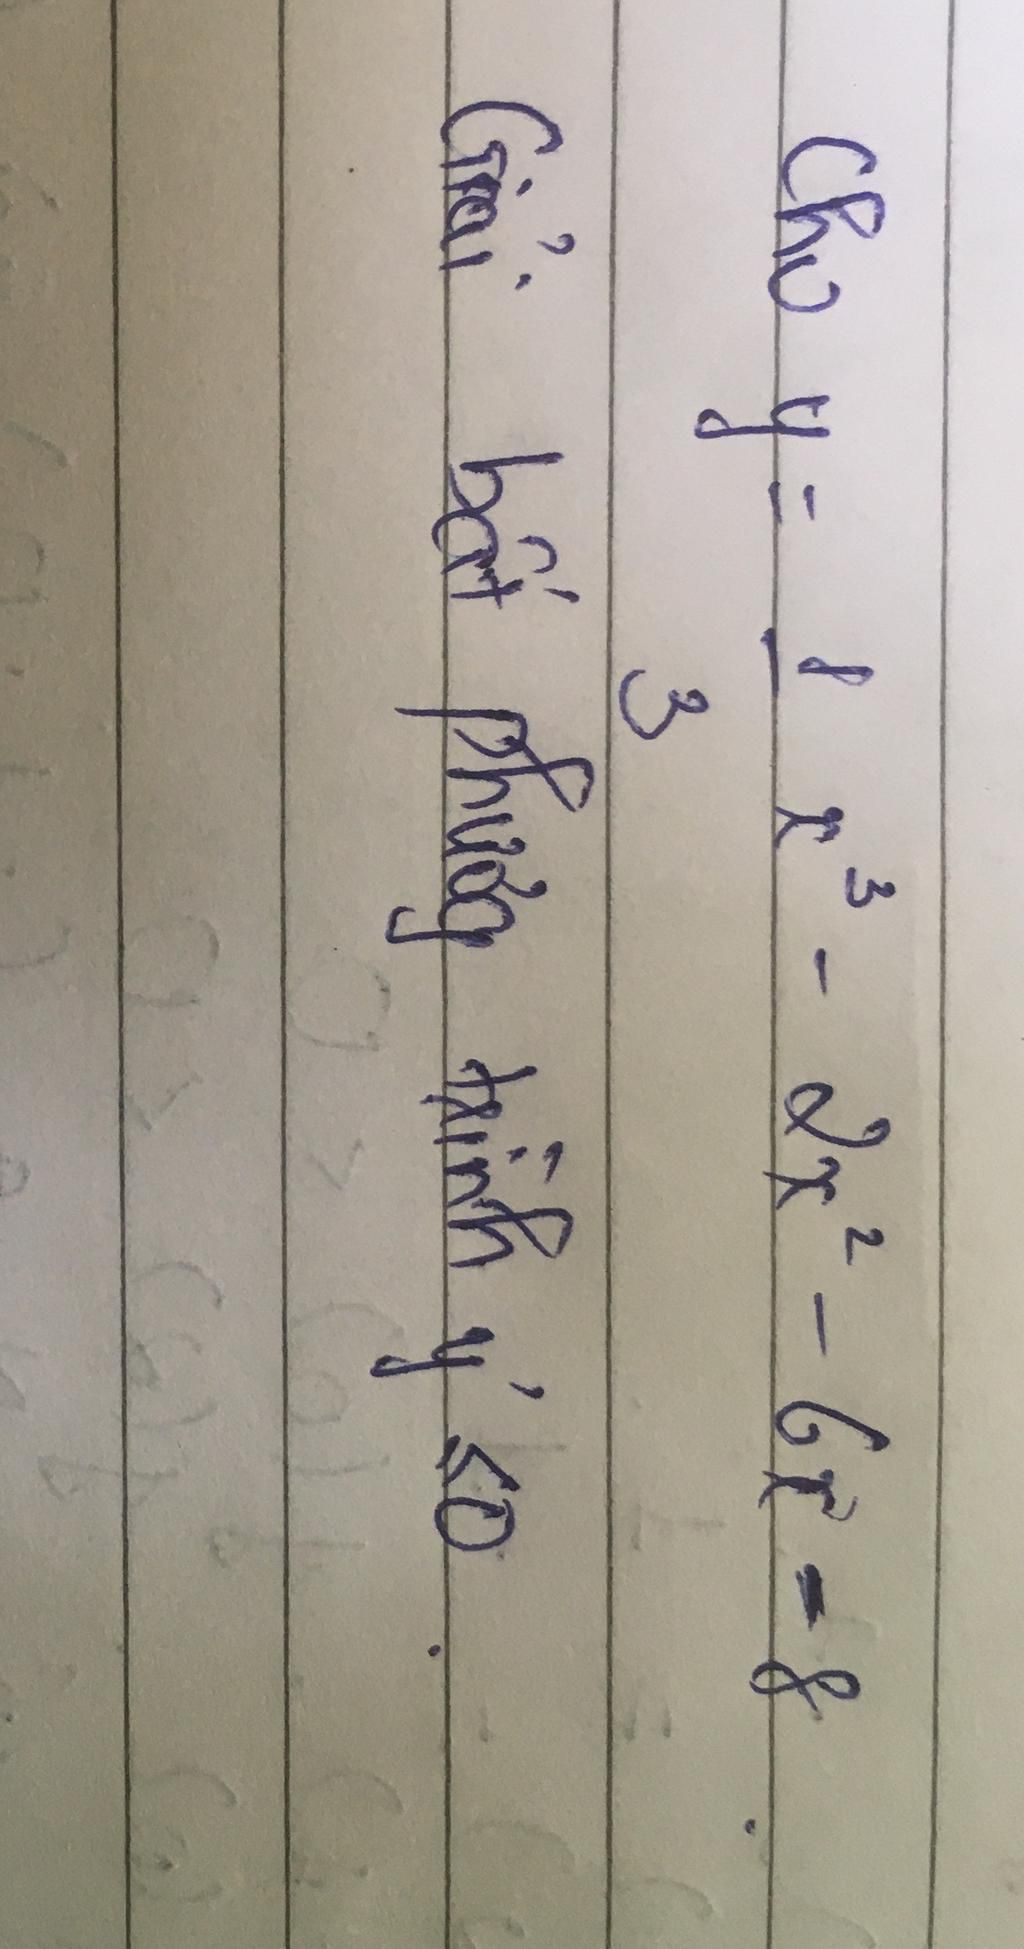 Cho y = 1/3 x³ - 2x² - 6x - 8
Giải bất phương trình y' ≤ 0